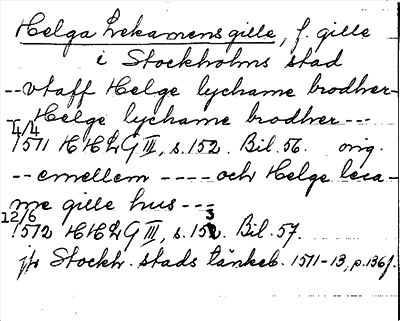 Helga Lekamens gille, f. gille
i Stockholms stad
-- vtaff Helge lychame brodher-
- Helge lychame brodher ---
4/4
1571 HHLG III, s.152. Bil.56. orig.
-- emellem ---- och Helge leca-
me gille hus ---
12/6
1572 HHLG III, s.153. Bil.57.
jfr Stockh. stads tänkeb. 1571-13, p.136f.